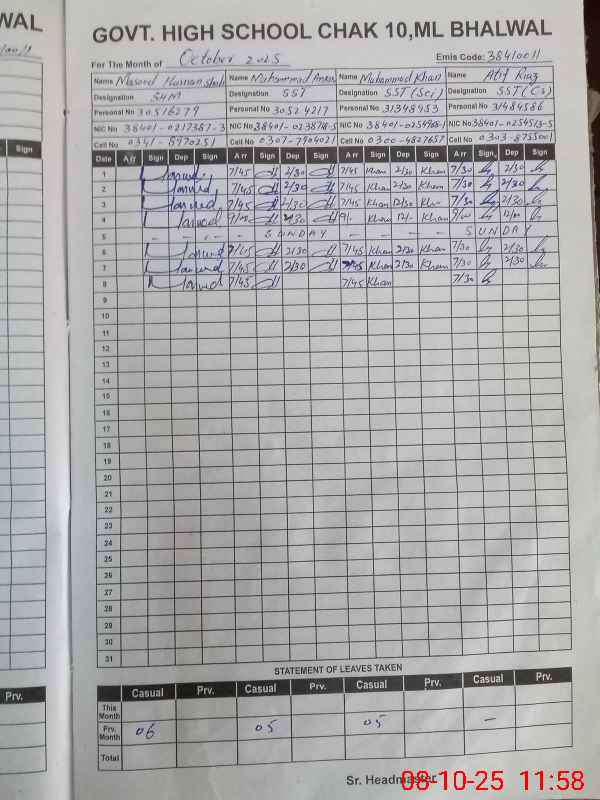 WAL
GOVT. HIGH SCHOOL CHAK 10,ML BHALWAL
For The Month of October 2025 Emis Code: 38410011
Name Masood Hussain Shah Name Muhammad Name Muhammad Khan Name Atif Riaz
Designation SHM Designation SST Designation SST(Sci) Designation SST(Cs)
Personal No 30516279 Personal No 30524217 Personal No 31348453 Personal No 31484586
NIC No 38401-0217387-3 NIC No 38401-0238718-5 NIC No NIC No
Cell No 0341-8970251 Cell No 0307-7904021 Cell No 0300-4827657 Cell No 0303-8755001
Sign Date Arr Sign Dep Sign Arr Sign Dep Sign Arr Sign Dep Sign Arr Sign Dep Sign
1 7/45 2/30 7/45 Khan 2/30 Khan 7/30 2/30
2 7/45 2/30 7/45 Khan 2/30 Khan 7/30 2/30
3 7/45 2/30 7/45 Khan 12/30 Khan 7/30 2/30
4 9/00 2/30 9/- Khan 12/- Khan 12/00
5 - - - SUNDAY - - - - - SUNDAY
6 7/45 2/30 7/45 Khan 2/30 Khan 7/30 2/30
7 7/45 2/30 7/45 Khan 2/30 Khan 7/30 2/30
8 7/45 7/45 Khan 7/30
9
10
11
12
13
14
15
16
17
18
19
20
21
22
23
24
25
26
27
28
29
30
31
STATEMENT OF LEAVES TAKEN
Prv. Casual Prv. Casual Prv. Casual Prv. Casual Prv.
This Month
Prv. Month 06 05 05 -
Total
Sr. Headmaster
08-10-25 11:58